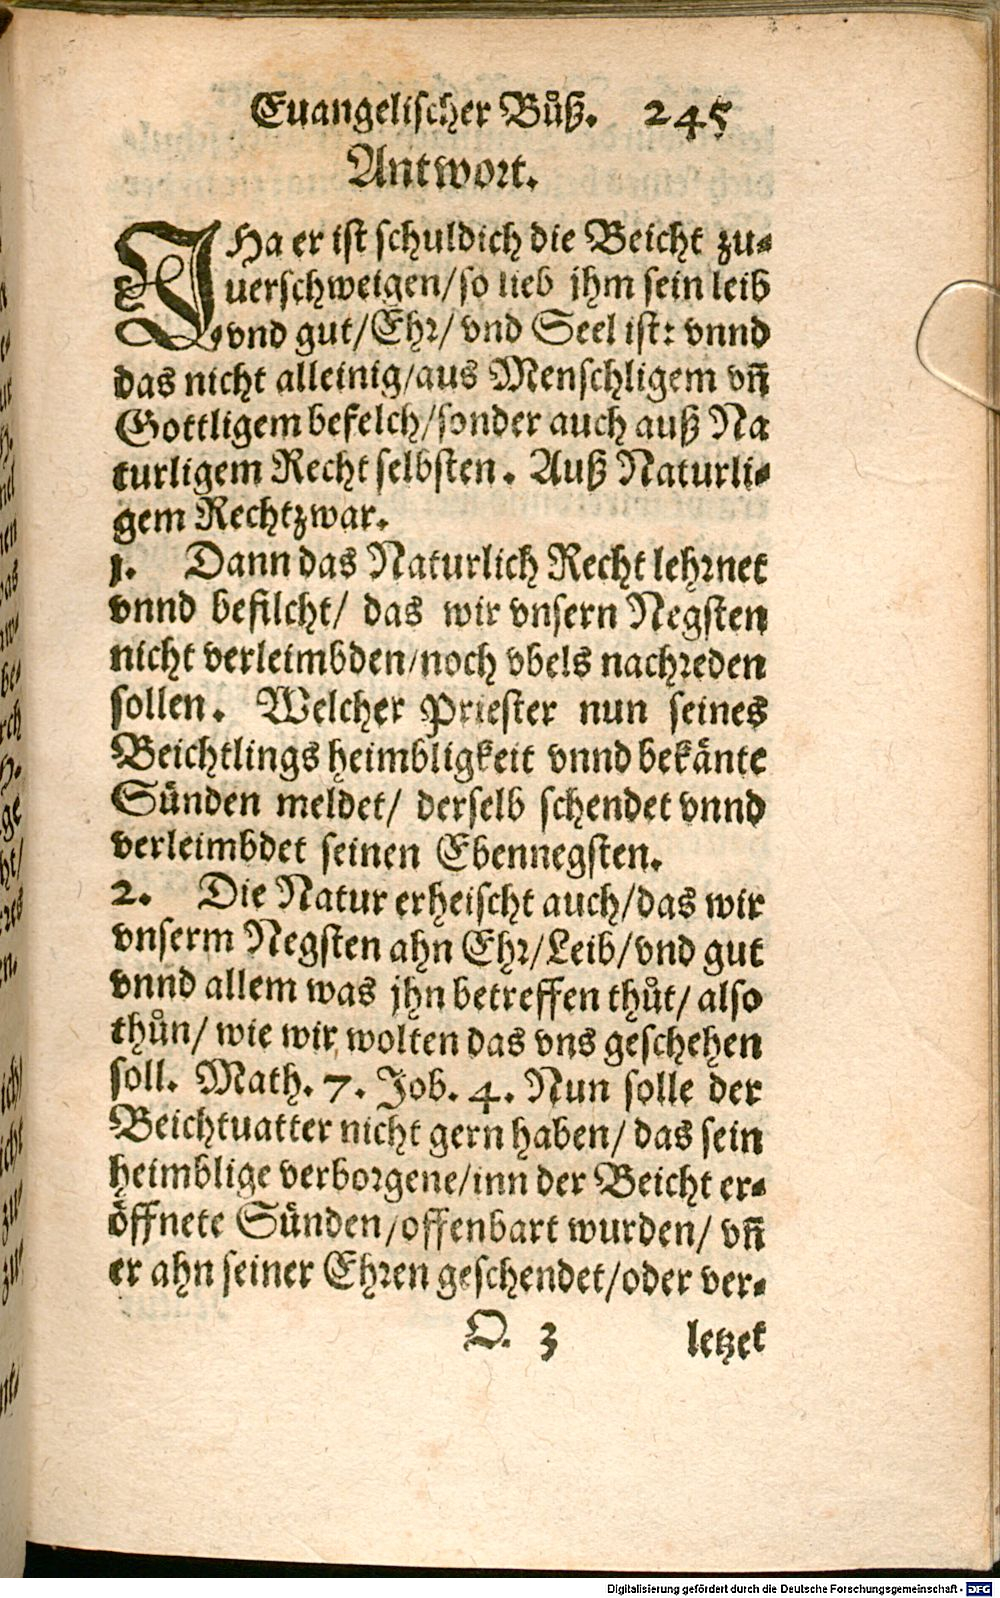 Euangelischer Bůß. 245
Antwort.
JHa er ist schuldich die Beicht zu-
uerschweigen/so lieb jhm sein leib
vnd gut/Ehr/ vnd Seel ist: vnnd
das nicht alleinig/aus Menschligem vñ
Gottligem befelch/sonder auch auß Na
turligem Recht selbsten. Auß Naturli-
gem Recht zwar.
1. Dann das Naturlich Recht lehrnet
vnnd befilcht/ das wir vnsern Negsten
nicht verleimbden/noch vbels nachreden
sollen. Welcher Priester nun seines
Beichtlings heimbligkeit vnnd bekänte
Sünden meldet/ derselb schendet vnnd
verleimbdet seinen Ebennegsten.
2. Die Natur erheischt auch/das wir
vnserm Negsten ahn Ehr/Leib/vnd gut
vnnd allem was jhn betreffen thůt/ also
thůn/ wie wir wolten das vns geschehen
soll. Math. 7. Job. 4. Nun solle der
Beichtuatter nicht gern haben/ das sein
heimblige verborgene/inn der Beicht er-
öffnete Sünden/offenbart wurden/ vñ
er ahn seiner Ehren geschendet/oder ver-
O. 3 letzet
Digitalisierung gefördert durch die Deutsche Forschungsgemeinschaft - DFG